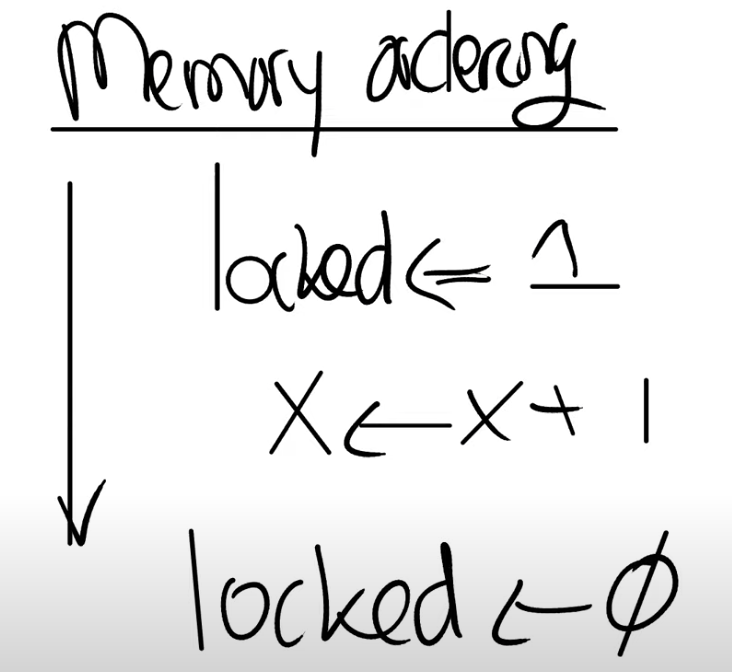 Memory ordering
locked ⇐ 1
x ← x + 1
locked ← ∅